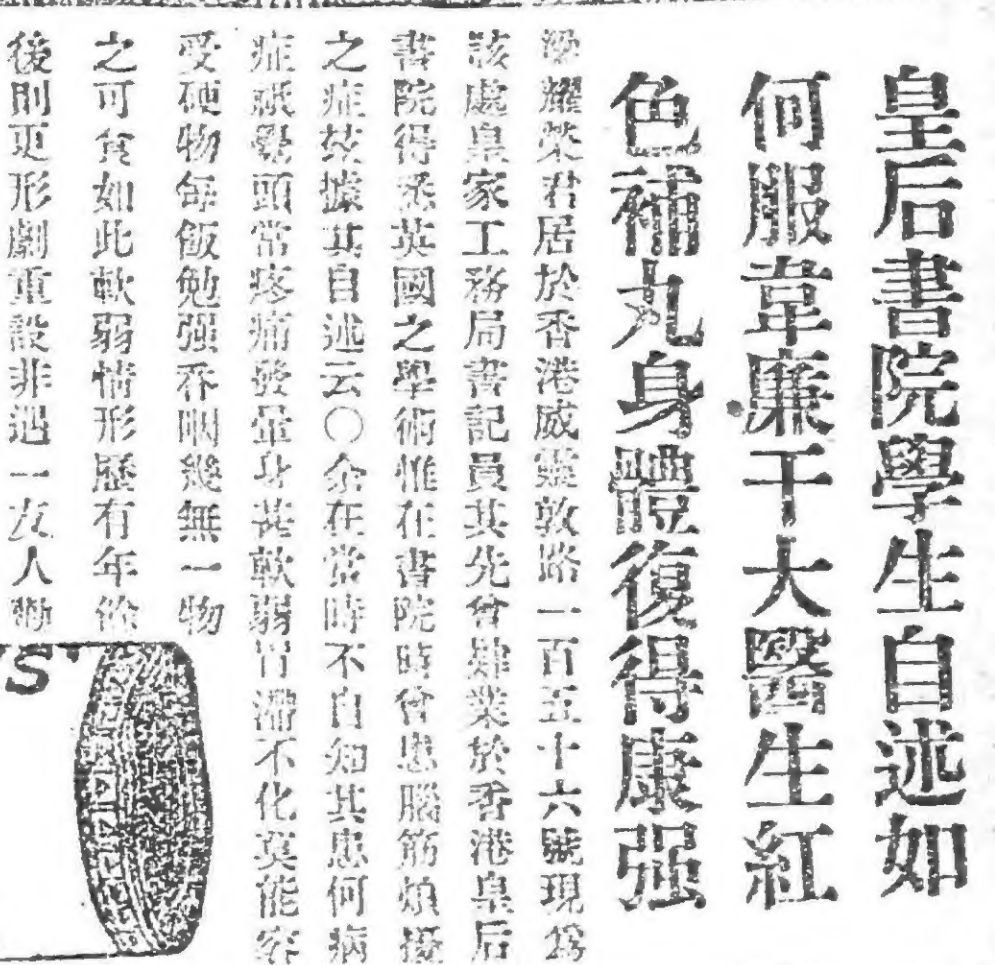 皇后書院學生自述如
何服韋廉干大醫生紅
色補丸身體復得康强
梁耀榮君居於香港威靈敦路一百五十六號現爲
該處皇家工務局書記員其先曾肄業於香港皇后
書院得悉英國之學術惟在書院時曾患腦筋煩擾
之症茲據其自述云〇余在常時不自知其患何病
症祇覺頭常疼痛發暈身甚軟弱胃滯不化莫能容
受硬物每飯勉强吞咽幾無一物
之可食如此軟弱情形歷有年餘
後則更形劇重設非遇一友人勸
S'